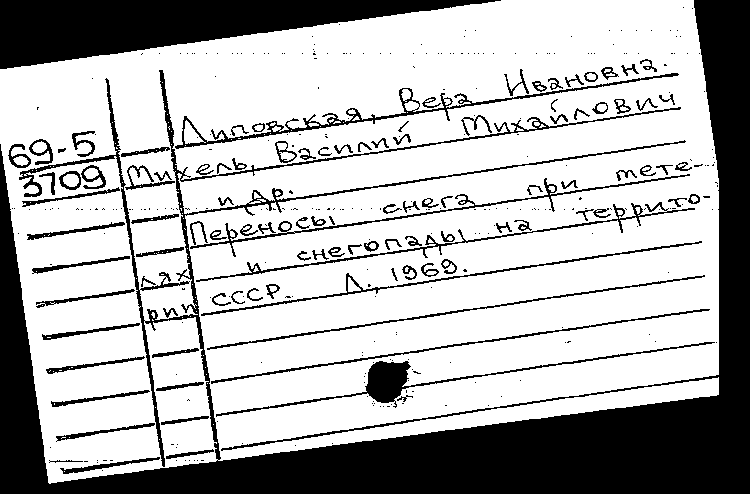 69-5
3709
Липовская, Вера Ивановна.
Михель, Василий Михайлович
и др.
Переносы снега при мете-
лях и снегопады на террито-
рии СССР. Л., 1969.